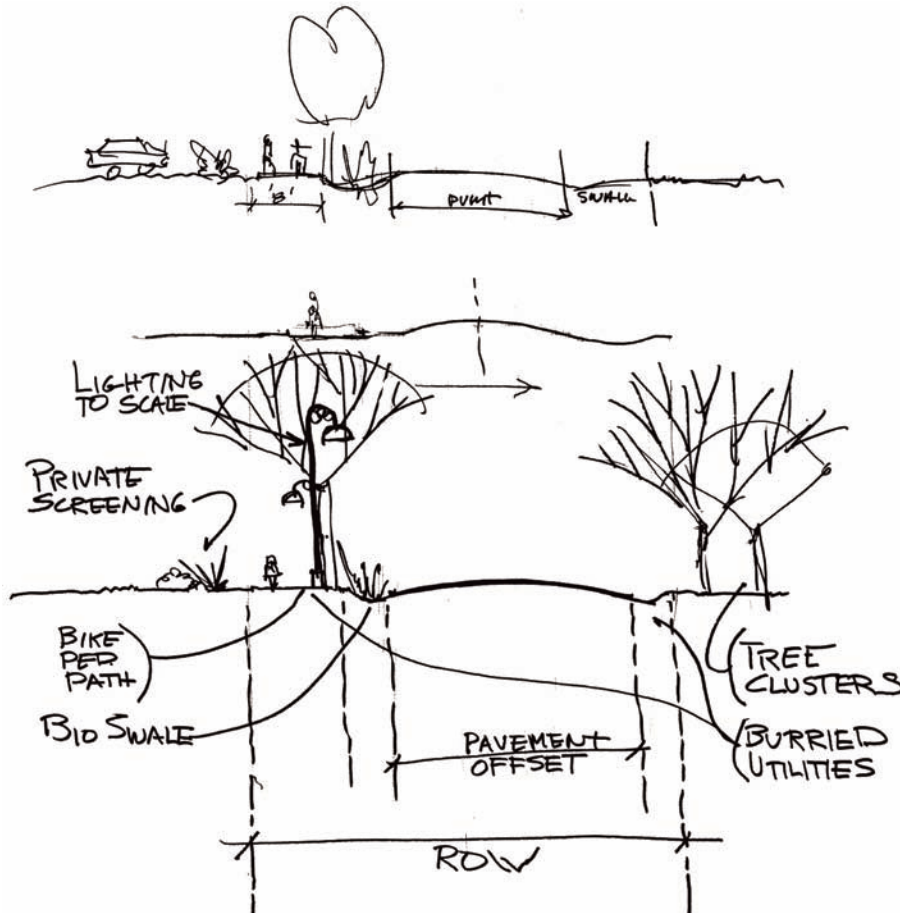 '8'
PVMT
SWALE
LIGHTING
TO SCALE
PRIVATE
SCREENING
BIKE
PED
PATH
BIO SWALE
PAVEMENT
OFFSET
TREE
CLUSTERS
BURRIED
UTILITIES
ROW